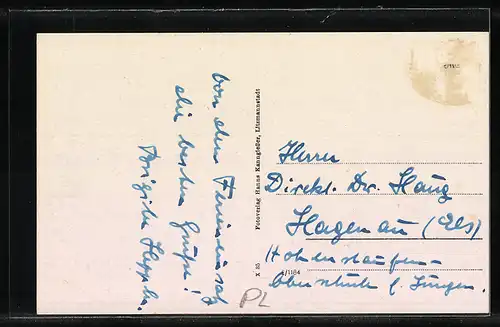 Von dem Ferieneinsatz
die besten Grüße!
Brigitte
Fotoverlag Hanns Kanngießer, Litzmannstadt
X 85
4/1184
Herrn
Direkt. Dr. Haug
Hagenau (Els)
Hohenstaufen-
Oberschule f. Jungen.
PL